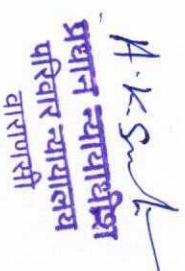 प्रधान न्यायाधीश
परिवार न्यायालय
वाराणसी